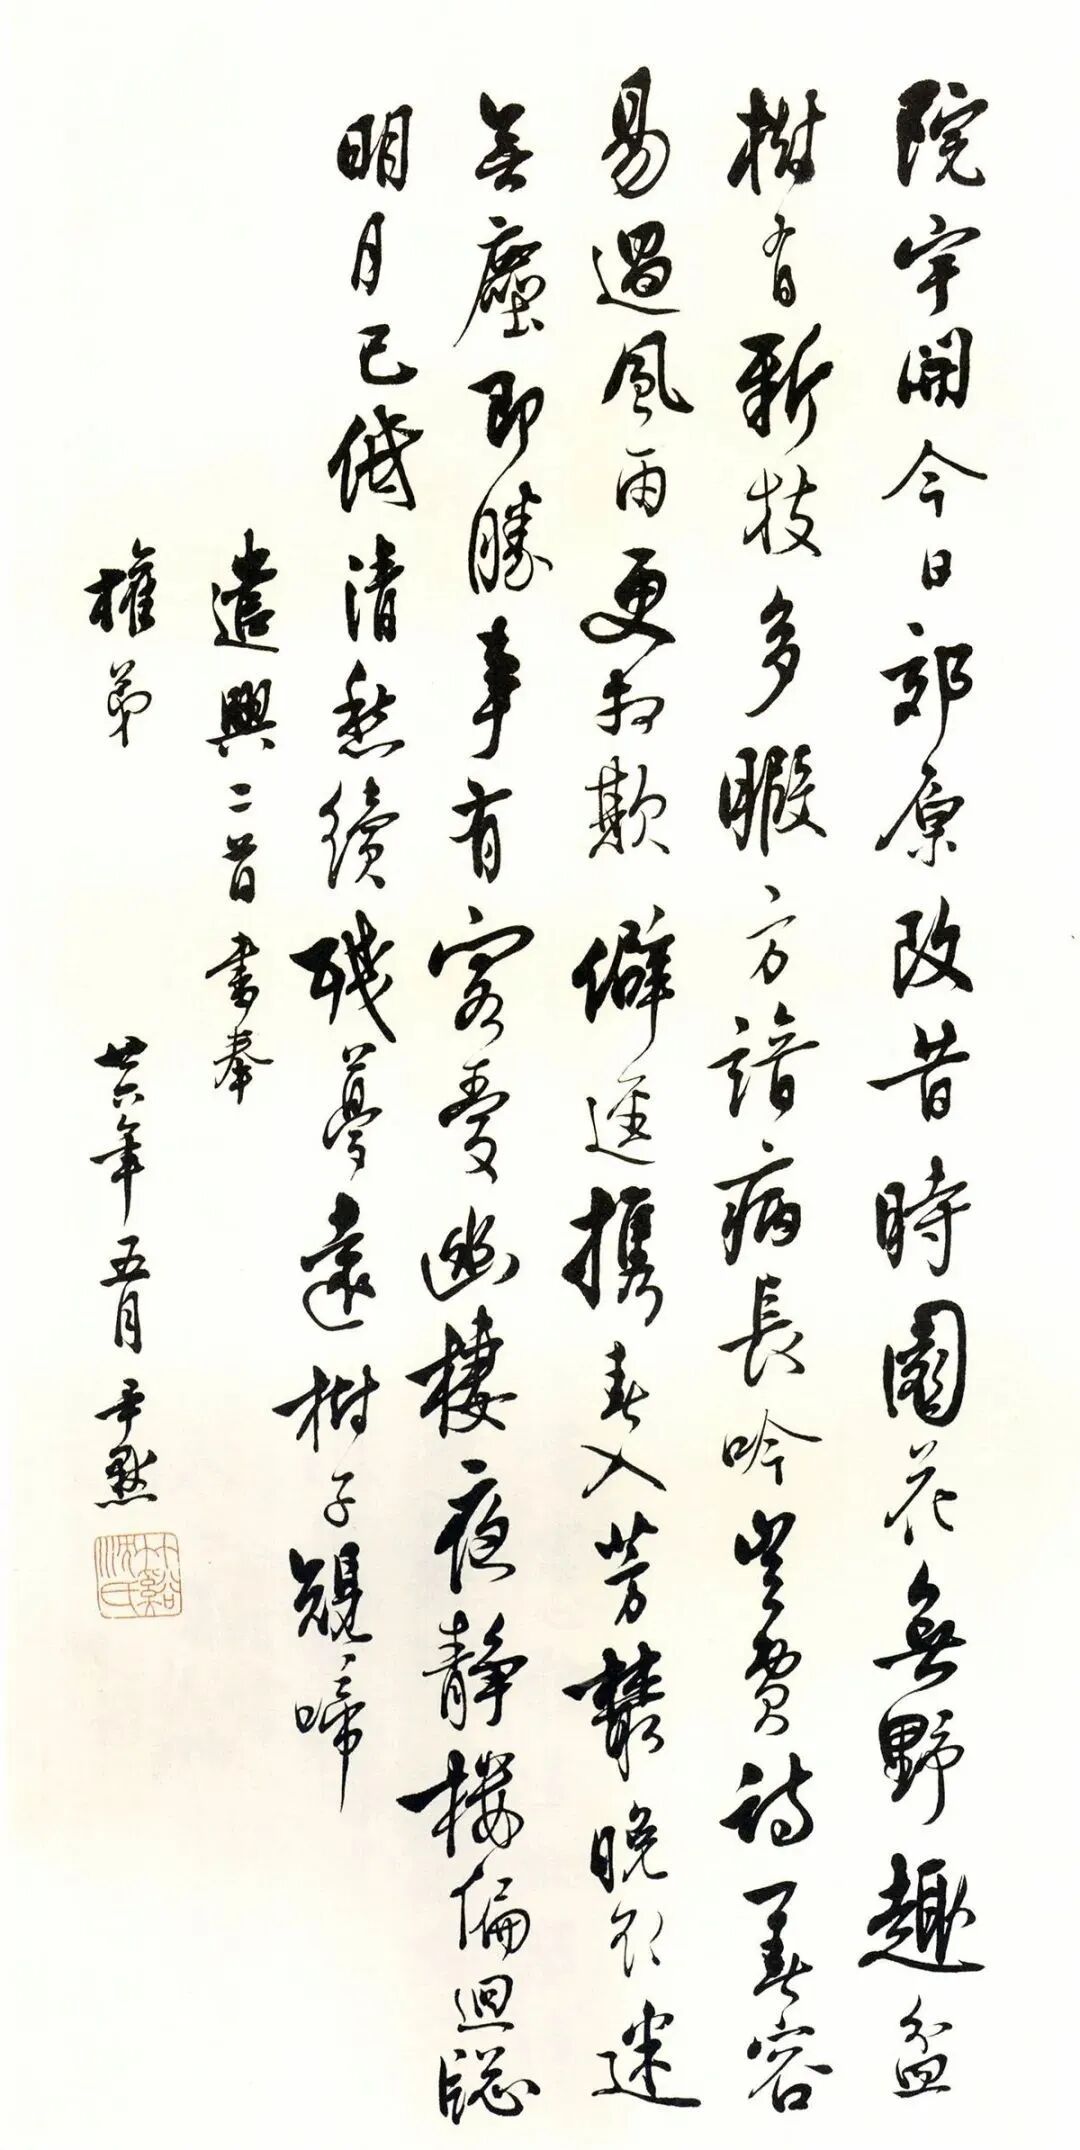 院宇開今日郊原改昔時園花無野趣盆
樹有新枝多暇方諳病長吟豈費詩春容
易過風雨更相欺僻逕携春入芳叢晚欲迷
無塵即勝事有客愛幽棲夜静樓偏迥牕
明月已低清愁續殘夢遠樹子規啼
遣興二首書奉
權弟 廿六年五月尹默
竹谿沈氏